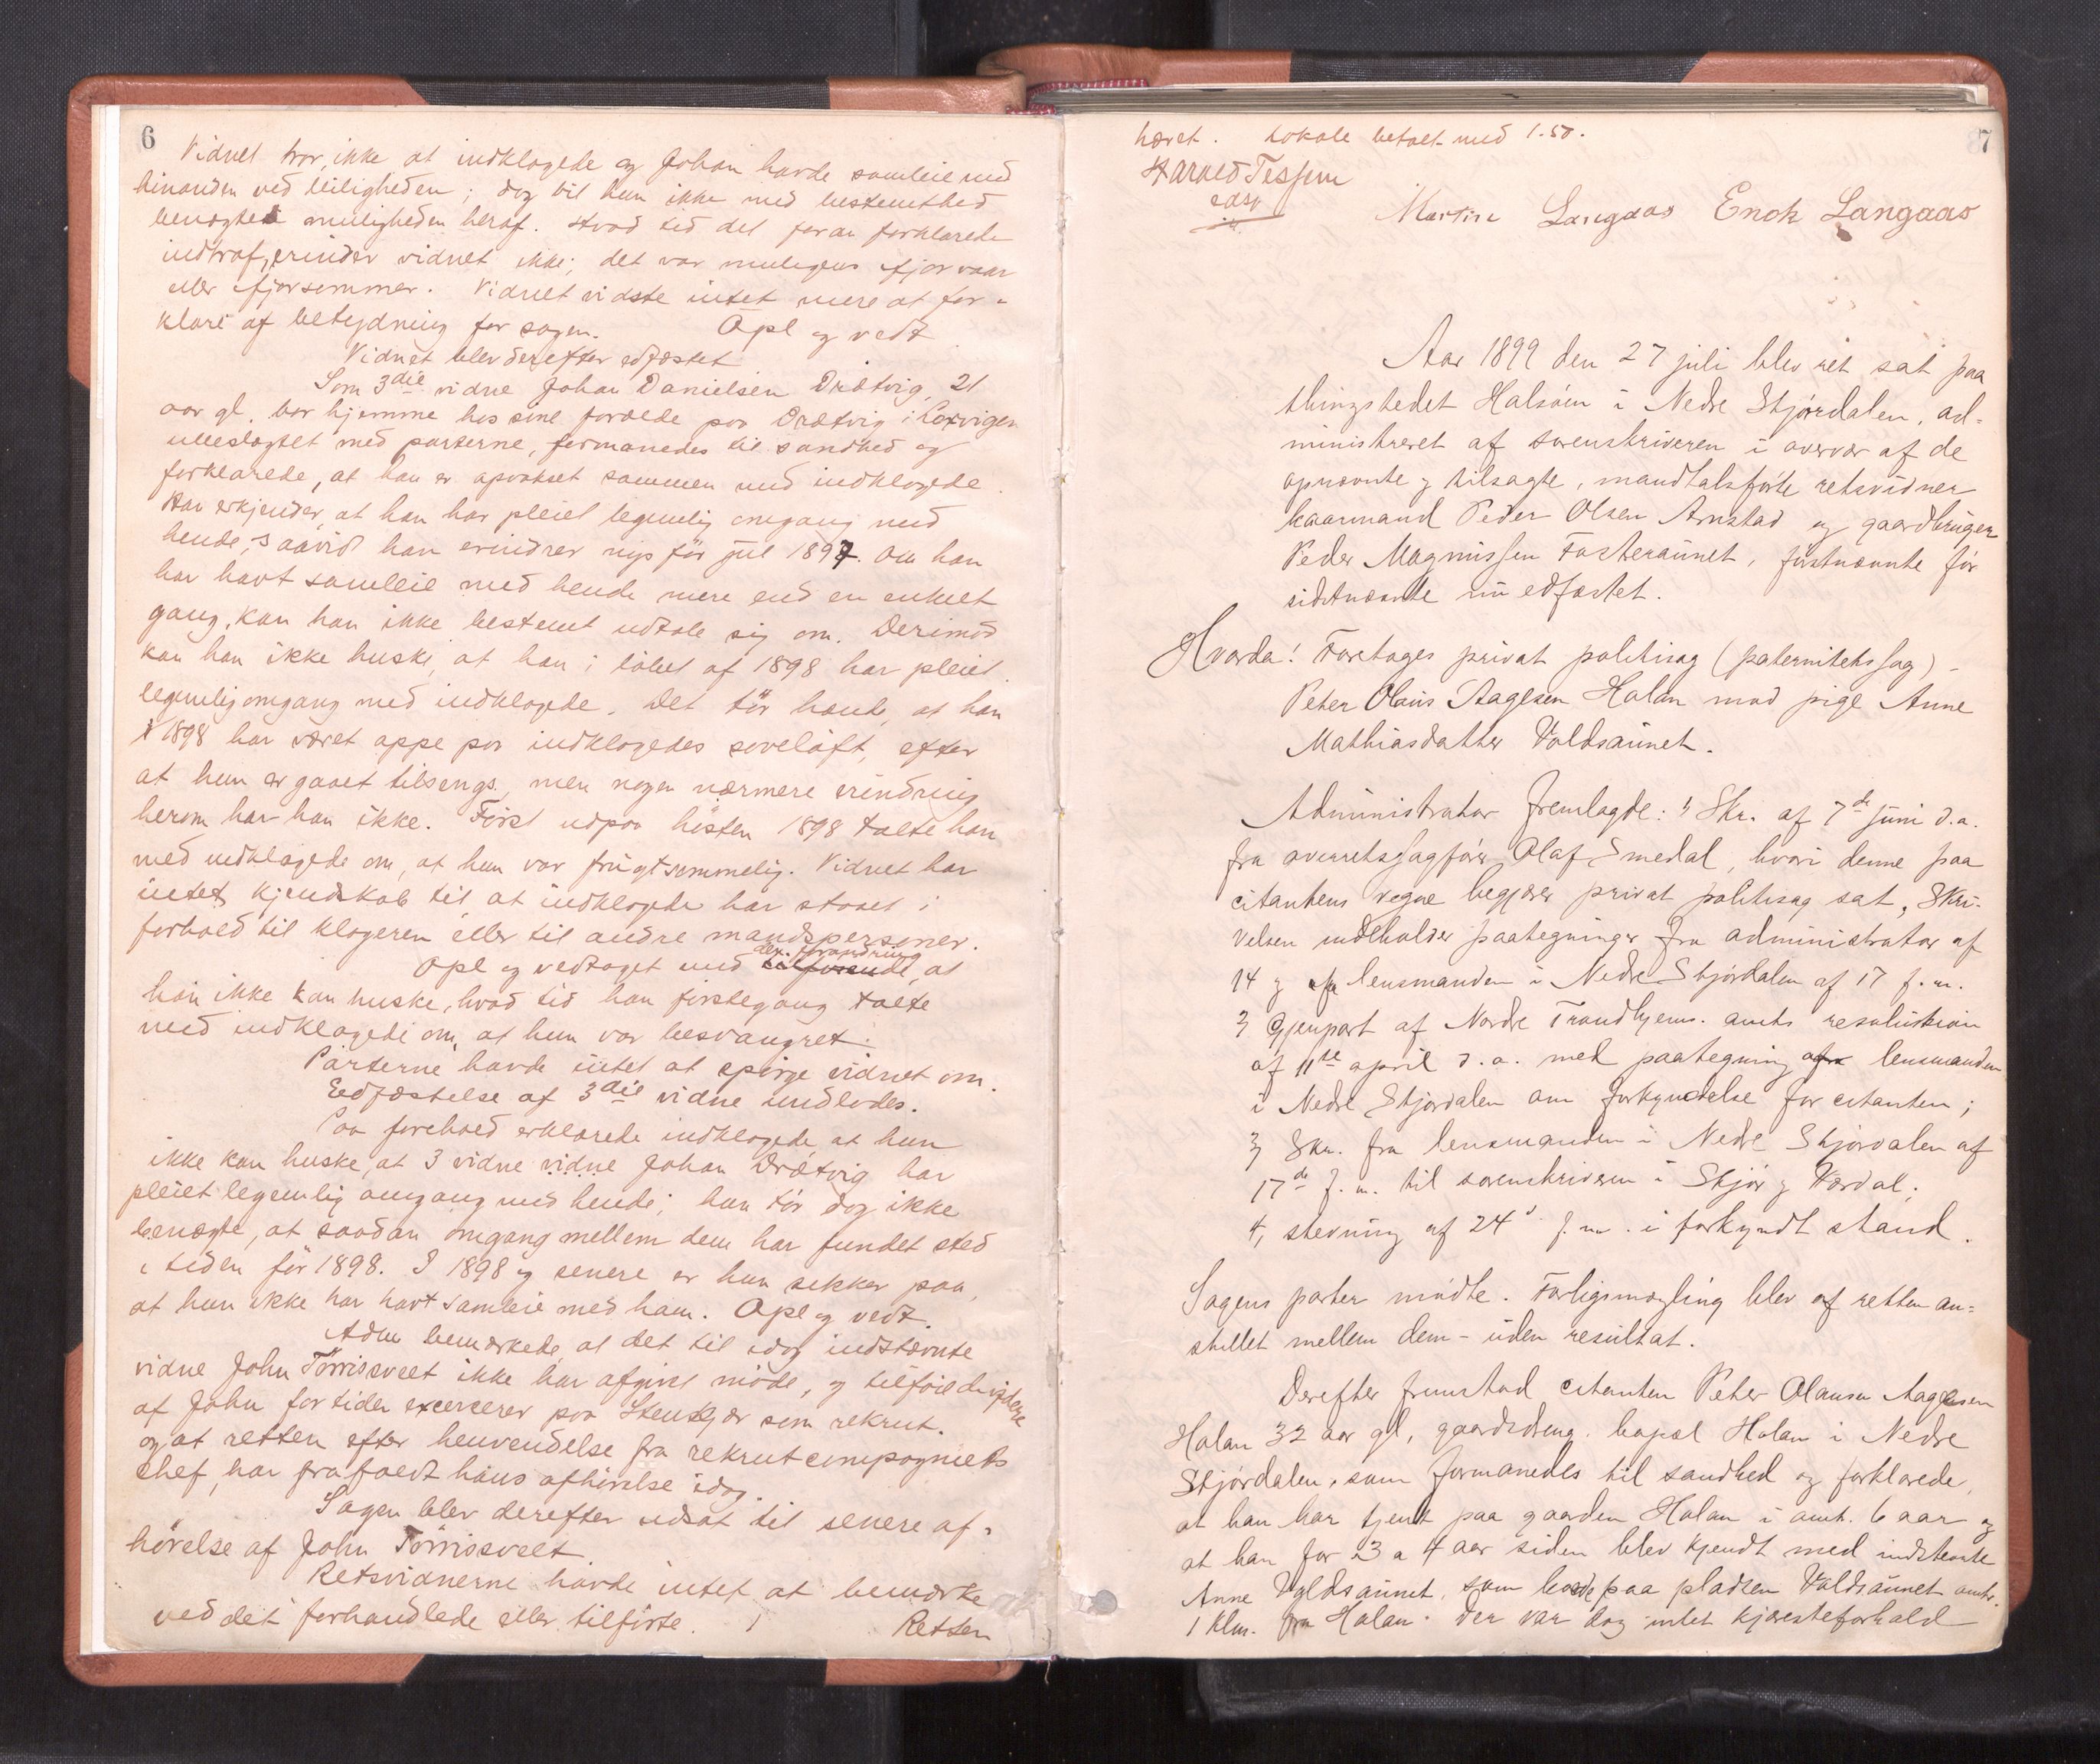 6
Vidnet tror ikke at indklagede og Johan havde samleie med
hinanden ved leiligheden; dog vil hun ikke med bestemthed
benægte muligheden heraf. Hvad tid det foran forklarede
indtraf, erindrer vidnet ikke; det var muligens ifjor vaar
eller ifjorsommer. Vidnet vidste intet mere at for-
klare af betydning for sagen. Opl og vedt
Vidnet blev derefter edfæstet
Som 3die vidne Johan Danielsen Drætvig, 21
aar gl. bor hjemme hos sine forælde paa Drætvig i
ubeslægtet med parterne, formanedes til sandhed og
forklarede, at han er opvokset sammen med indklagede.
Han erkjender, at han har pleiet legemlig omgang med
hende, saavidt han erindrer nys før jul 1897. Om han
har havt samleie med hende mere end en enkelt
gang, kan han ikke bestemt udtale sig om. Derimod
kan han ikke huske, at han i løbet af 1898 har pleiet
legemlig omgang med indklagede. Det tør hænde, at han
i 1898 har været oppe paa indklagedes soveloft, efter
at hun er gaaet tilsengs, men nogen nærmere erindring
herom har han ikke. Først udpaa høsten 1898 talte han
med indklagede om, at hun var frugtsommelig. Vidnet har
intet kjendskab til, at indklagede har staaet i
forhold til klageren eller til andre mandspersoner.
Opl og vedtaget med den forandring at
han ikke kan huske, hvad tid han førstegang talte
med indklagede om, at hun var besvangret.
Parterne havde intet at spørge vidnet om.
Eedfæstelse af 3die vidne undlodes.
Paa forehold erklærede indklagede, at hun
ikke kan huske, at 3 vidne vidne Johan Drætvig har
pleiet legemlig omgang med hende; hun tør dog ikke
benægte, at saadan omgang mellem dem har fundet sted
i tiden før 1898. I 1898 og senere er hun sikker paa,
at hun ikke har havt samleie med ham. Opl og vedt.
Adm bemærkede, at det til idag indstævnte
vidne John Tørrissvelt ikke har afgivet møde, og tilføiede videre
at John for tiden excercerer paa Stenkjær som rekrut.
og at retten efter henvendelse fra rekrutcompagniets
chef, har frafaldt hans afhørelse idag.
Sagen blev derefter udsat til senere af-
hørelse af John Tørrissvelt.
Retsvidnerne havde intet at bemærke
ved det forhandlede eller tilførte.
Retten
7
hævet. Lokale betalt med 1.50.
Harald Tessem
edsv
Martin Langaas Enok Langaas
Aar 1899 den 27 juli blev ret sat paa
thingstedet Halsøen i Nedre Stjørdalen, ad-
ministreret af sorenskriveren i overvær af de
opnævnte og tilsagte, mandtalsførte retsvidner
kaarmand Peder Olsen Arnstad og gaardbruger
Peder Magnussen Fosteraunet, førstnævnte før
sidstnævnte nu edfæstet.
Hvorda! Foretages privat politisag (paternitetssag)
Peter Olaus Aagesen Holan mod pige Anne
Mathiasdatter Voldsaunet.
Administrator fremlagde: 1, Skr. af 7de juni d.a.
fra overretssagfører Olaf Smedal, hvori denne paa
citantens vegne begjærer privat politisag sat, Skri-
velsen indeholder paategninger fra administrator af
14 og lensmanden i Nedre Stjørdalen af 17 f.m.
2, Gjenpart af Nordre Trondhjems amts resolution
af 11te april d.a. med paategning af lensmanden
i Nedre Stjørdalen om forkyndelse for citanten;
3, Skr. fra lensmanden i Nedre Stjørdalen af
17de f.m. til sorenskriveren i Stjør og Værdal;
4, stevning af 24 f.m. i forkyndt stand.
Sagens parter mødte. Forligsmægling blev af retten an-
stillet mellem dem - uden resultat.
Derefter fremstod citanten Peter Olausen Aagesen
Holan 32 aar gl, gaardsdreng, bopæl Holan i Nedre
Stjørdalen, som formanedes til sandhed og forklarede,
at han har tjent paa gaarden Holan i omt. 6 aar og
at han for 3 a 4 aar siden blev kjendt med indstevnte
Anne Voldsaunet, som boede paa pladsen Voldsaunet omtr.
1 Klm. fra Holan. Der var dog intet kjæresteforhold